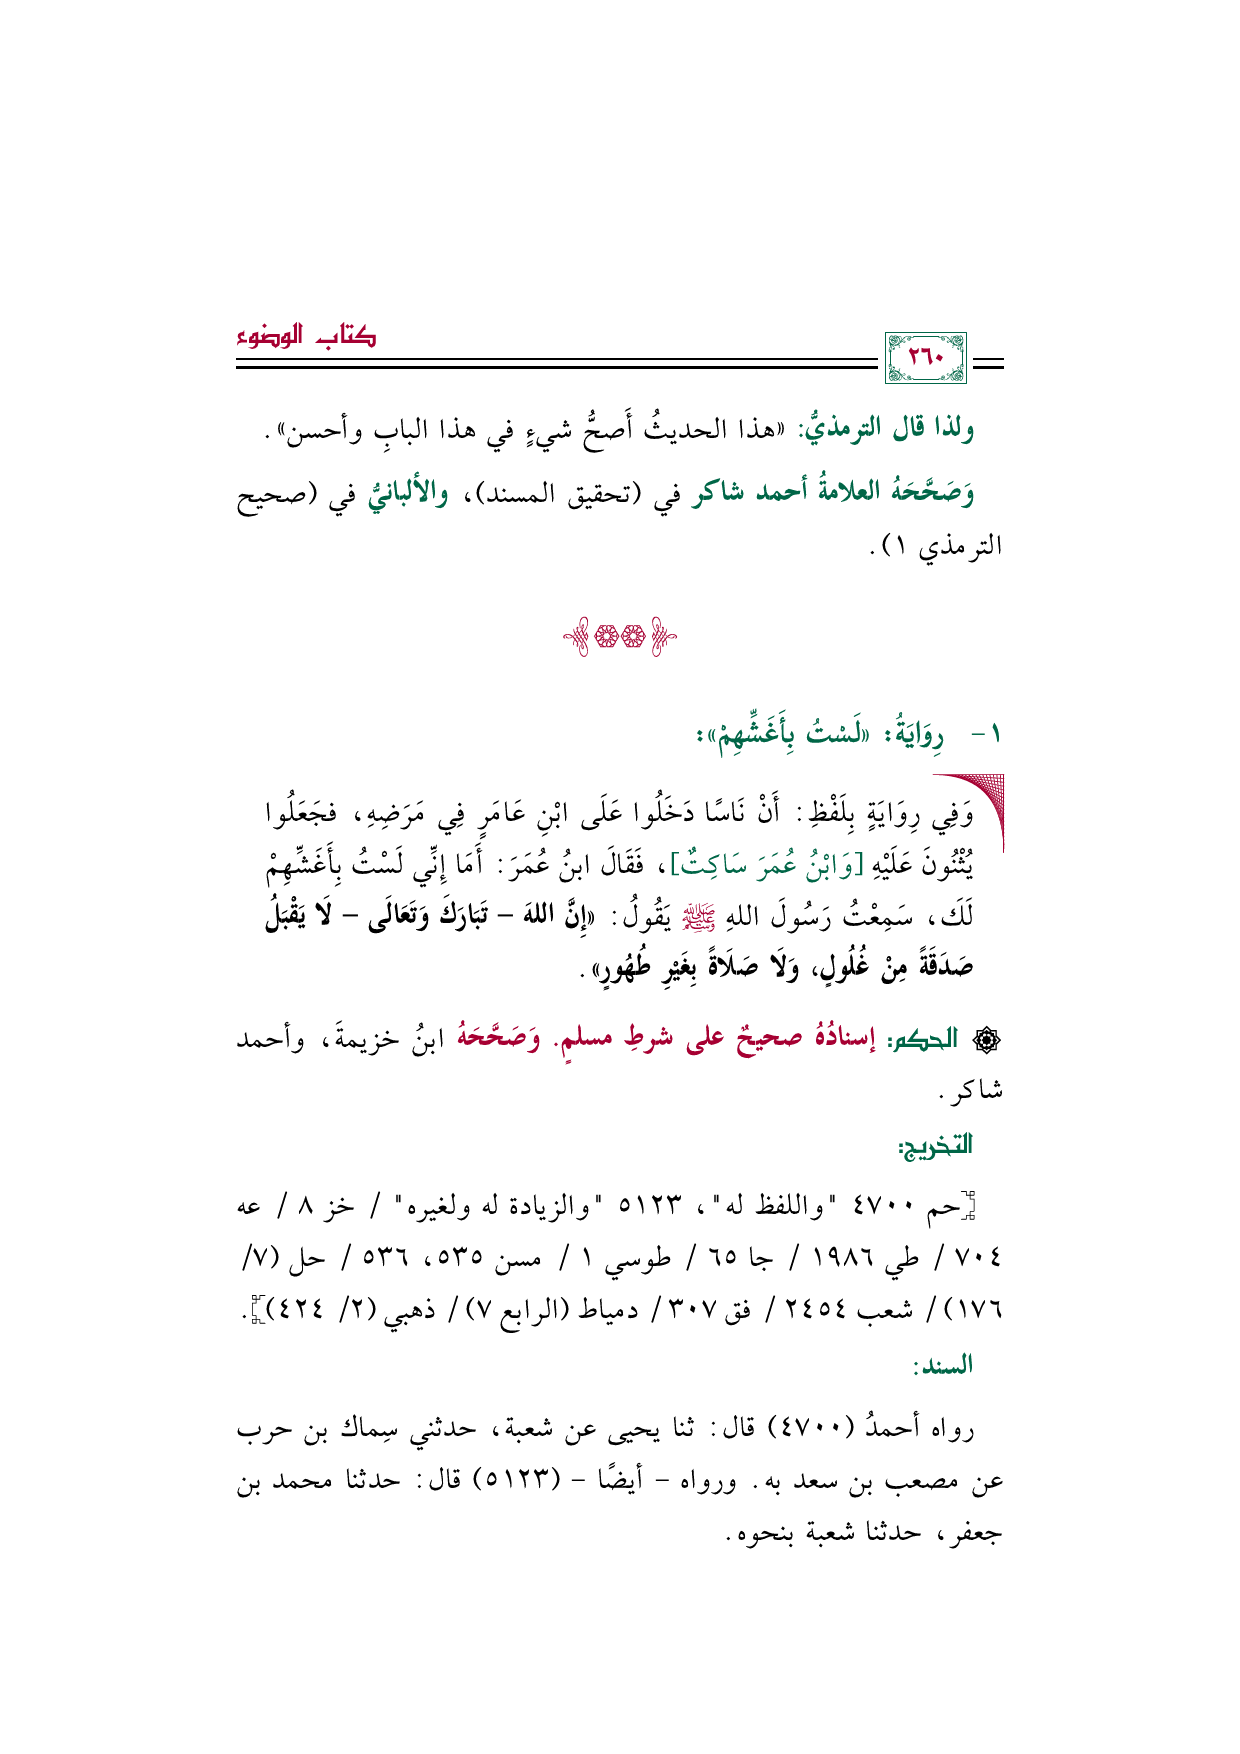 كتاب الوضوء
٢٦٠
ولذا قال الترمذيُّ: «هذا الحديثُ أَصحُّ شيءٍ في هذا البابِ وأحسن».
وَصَحَّحَهُ العلامةُ أحمد شاكر في (تحقيق المسند)، والألبانيُّ في (صحيح
الترمذي ١).
١- رِوَايَةُ: «لَسْتُ بِأَغَشِّهِمْ»:
وَفِي رِوَايَةٍ بِلَفْظِ: أَنْ نَاسًا دَخَلُوا عَلَى ابْنِ عَامَرٍ فِي مَرَضِهِ، فجَعَلُوا
يُثْنُونَ عَلَيْهِ [وَابْنُ عُمَرَ سَاكِتٌ]، فَقَالَ ابنُ عُمَرَ: أَمَا إِنِّي لَسْتُ بِأَغَشِّهِمْ
لَكَ، سَمِعْتُ رَسُولَ اللهِ ﷺ يَقُولُ: «إِنَّ اللهَ – تَبَارَكَ وَتَعَالَى – لَا يَقْبَلُ
صَدَقَةً مِنْ غُلُولٍ، وَلَا صَلَاةً بِغَيْرِ طُهُورٍ».
الحكم: إسنادُهُ صحيحٌ على شرطِ مسلمٍ. وَصَحَّحَهُ ابنُ خزيمةَ، وأحمد
شاكر.
التخريج:
[حم ٤٧٠٠ "واللفظ له"، ٥١٢٣ "والزيادة له ولغيره" / خز ٨ / عه
٧٠٤ / طي ١٩٨٦ / جا ٦٥ / طوسي ١ / مسن ٥٣٥، ٥٣٦ / حل (٧/
١٧٦) / شعب ٢٤٥٤ / فق ٣٠٧ / دمياط (الرابع ٧) / ذهبي (٢/ ٤٢٤)].
السند:
رواه أحمدُ (٤٧٠٠) قال: ثنا يحيى عن شعبة، حدثني سِماك بن حرب
عن مصعب بن سعد به. ورواه – أيضًا – (٥١٢٣) قال: حدثنا محمد بن
جعفر، حدثنا شعبة بنحوه.